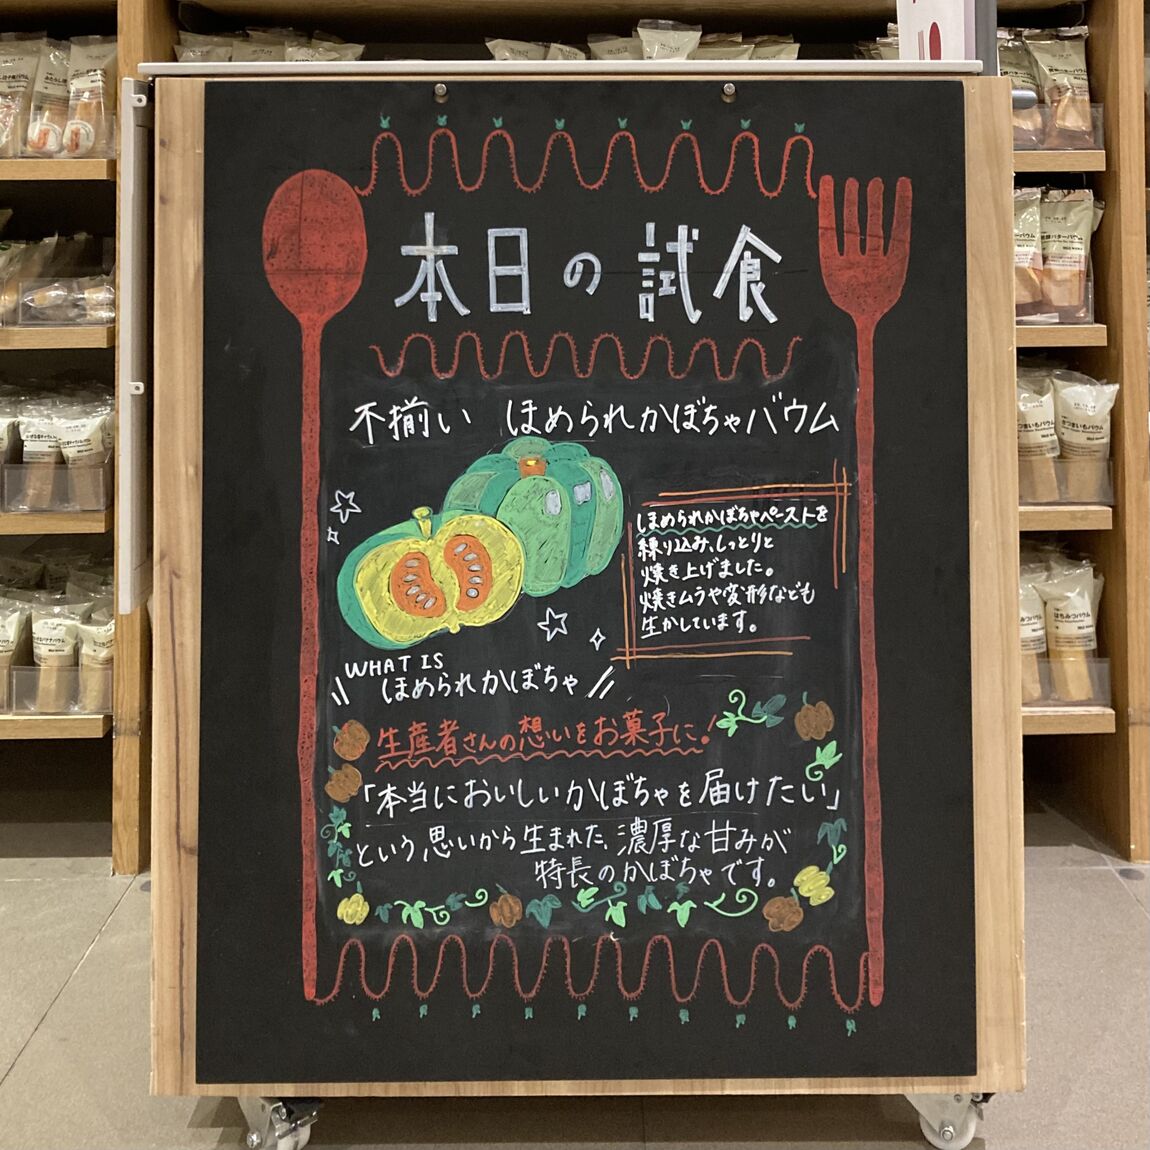 本日の試食
不揃い ほめられかぼちゃバウム
ほめられかぼちゃペーストを
練り込み、しっとりと
焼き上げました。
焼きムラや変形なども
生かしています。
WHAT IS
ほめられかぼちゃ
生産者さんの想いをお菓子に!
「本当においしいかぼちゃを届けたい」
という思いから生まれた、濃厚な甘みが
特長のかぼちゃです。
さつまいもバウム
はちみつバウム